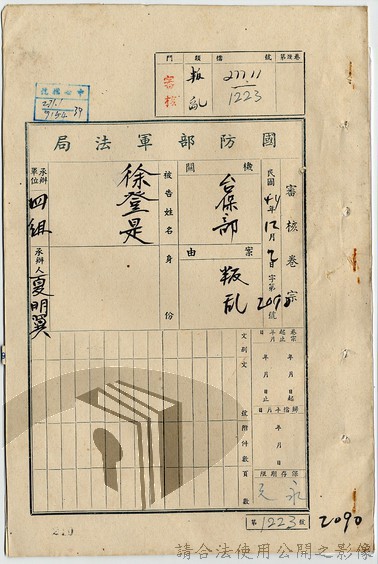 門 類 檔 號 第次卷
審核 叛亂 277.11
1223
中心檔號
271.1
國防部軍法局
審核卷宗
民國41年12月 日 字第2090號
機關 台保部
案由 叛乱
被告姓名 徐登是
身份
承辦單位 四組
承辦人 夏明翼
卷宗起止日期
年 月 日起
年 月 日止
歸檔年月日
年 月 日
保存期限
永
文別
文號
附件數
頁數
第1223號
2090
210
請合法使用公開之影像